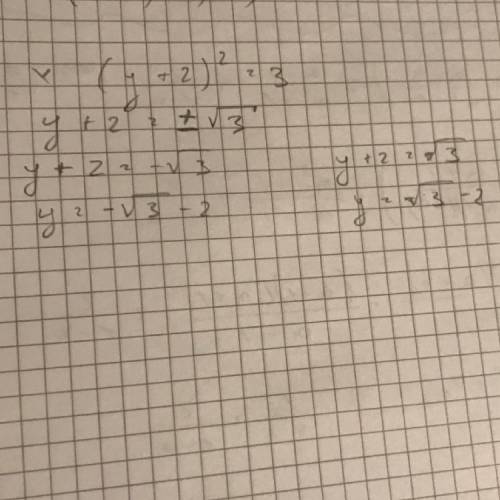 (y + 2)² = 3
y + 2 = ± √3
y + 2 = -√3
y = -√3 - 2
y + 2 = √3
y = √3 - 2